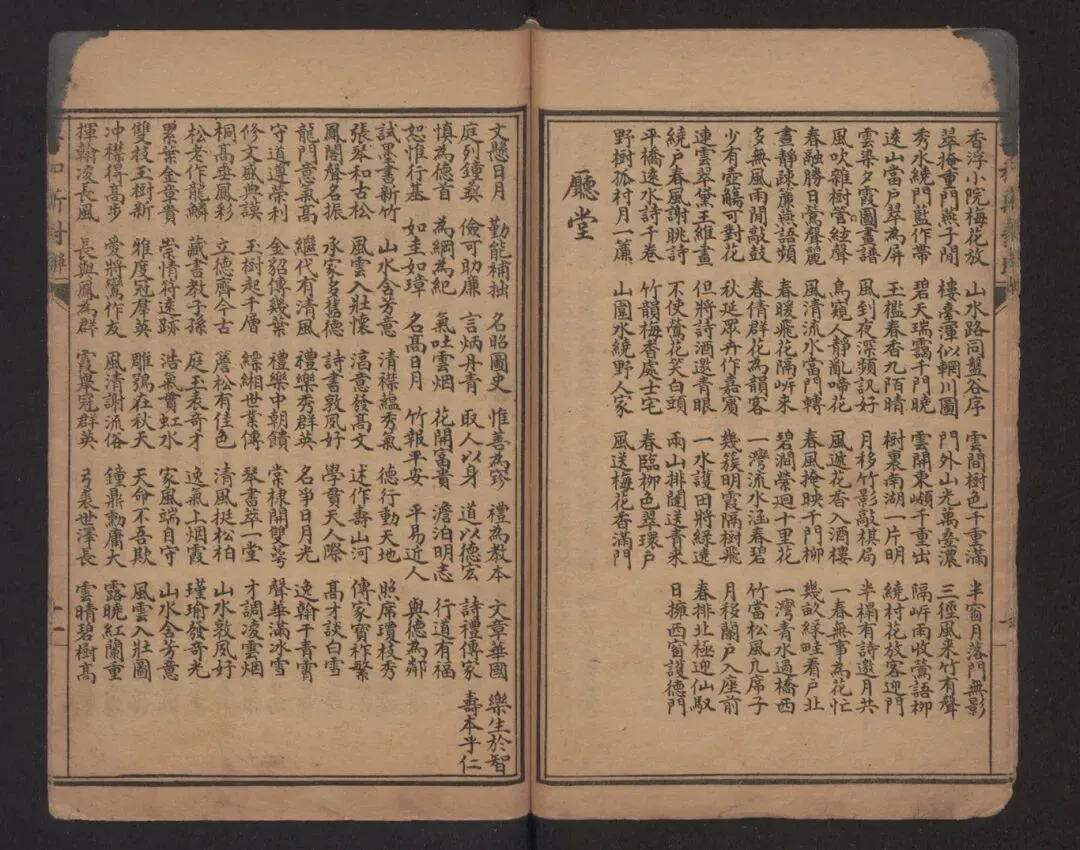 香浮小院梅花放 山水路同盤谷序 雲間樹色千重滿 半窗月落門無影
翠掩重門燕子閒 樓臺渾似輞川圖 門外山光萬疊濃 三徑風來竹有聲
秀水繞門藍作帶 碧天瑞靄千門曉 雲開東嶼千重出 隔岍雨收鶯語柳
逺山當戶翠為屏 玉檻春香九陌晴 樹裏南湖一片明 繞村花放客迎門
雲染夕霞圖畫譜 風到夜深頻訊好 月移竹影敲棋局 半榻有詩邀月共
風吹雜樹管絃聲 鳥窺人靜亂啼花 風遞花香入酒樓 一春無事為花忙
春融勝日鶯聲麗 風清流水當門轉 春風掩映千門柳 幾畝綠畦看戶北
晝靜疎簾燕語頻 春暖飛花隔岍來 碧澗縈迴十里花 一灣青水過橋西
多無風雨閒敲鼓 春倩群花為韻客 一灣流水涵春碧 竹當松風几席子
少有壺觴可對花 秋延眾卉作嘉賓 幾簇明霞隔樹飛 月移蘭戶入座前
連雲翠黛王維畫 但將詩酒邀青眼 一水護田將綠遶 春排北極迎仙馭
繞戶春風謝眺詩 不使鶯花笑白頭 兩山排闥送青來 日擁西窗護德門
平橋遠水詩千卷 竹韻梅香處士宅 春臨柳色翠環戶
野樹孤村月一簾 山圍水繞野人家 風送梅花香滿門
廳堂
文懸日月 勤能補拙 名昭圖史 惟善為寶 禮為教本 文章華國 樂生於智
庭列鐘彝 儉可助廉 言炳丹青 取人以身 道以德宏 詩禮傳家 壽本乎仁
慎為德首 為綱為紀 氣吐雲烟 花開富貴 澹泊明志 行道有福
恕惟行基 如圭如璋 名髙日月 竹報平安 平易近人 與德為鄰
試墨書新竹 山水含芳意 清襟韞秀氣 德行動天地 照席瓊枝秀
張琴和古松 風雲入壯懷 滈意發髙文 述作壽山河 傳家寶祚繁
鳳閣聲名振 承家多舊德 詩書敦夙好 學貫天人際 髙才談白雪
龍門意氣髙 繼代有清風 禮樂秀群英 名爭日月光 逸翰干青霄
守道遵榮利 金貂傳幾葉 禮樂中朝饋 棠棣開雙萼 聲華滿冰雪
修文盛典謨 玉樹起千層 縹緗世業傳 琴書萃一堂 才調凌雲烟
桐髙垂鳳彩 立德齊今古 簷松有佳色 清風挺松柏 山水敦夙好
松老作龍鱗 藏書教子孫 庭玉表奇才 逸氣上烟霞 瑾瑜發奇光
累葉金章貴 崇情符遠跡 浩氣貫虹水 家風端自守 山水含芳意
雙枝玉樹新 雅度冠羣英 雕鶚在秋天 天命不吾欺 風雲入壯圖
冲襟得高步 愛將鸞作友 風清謝流俗 鐘鼎勳庸大 露曉紅蘭重
揮翰凌長風 長與鳳為群 霞舉冠群英 弓裘世澤長 雲晴碧樹髙